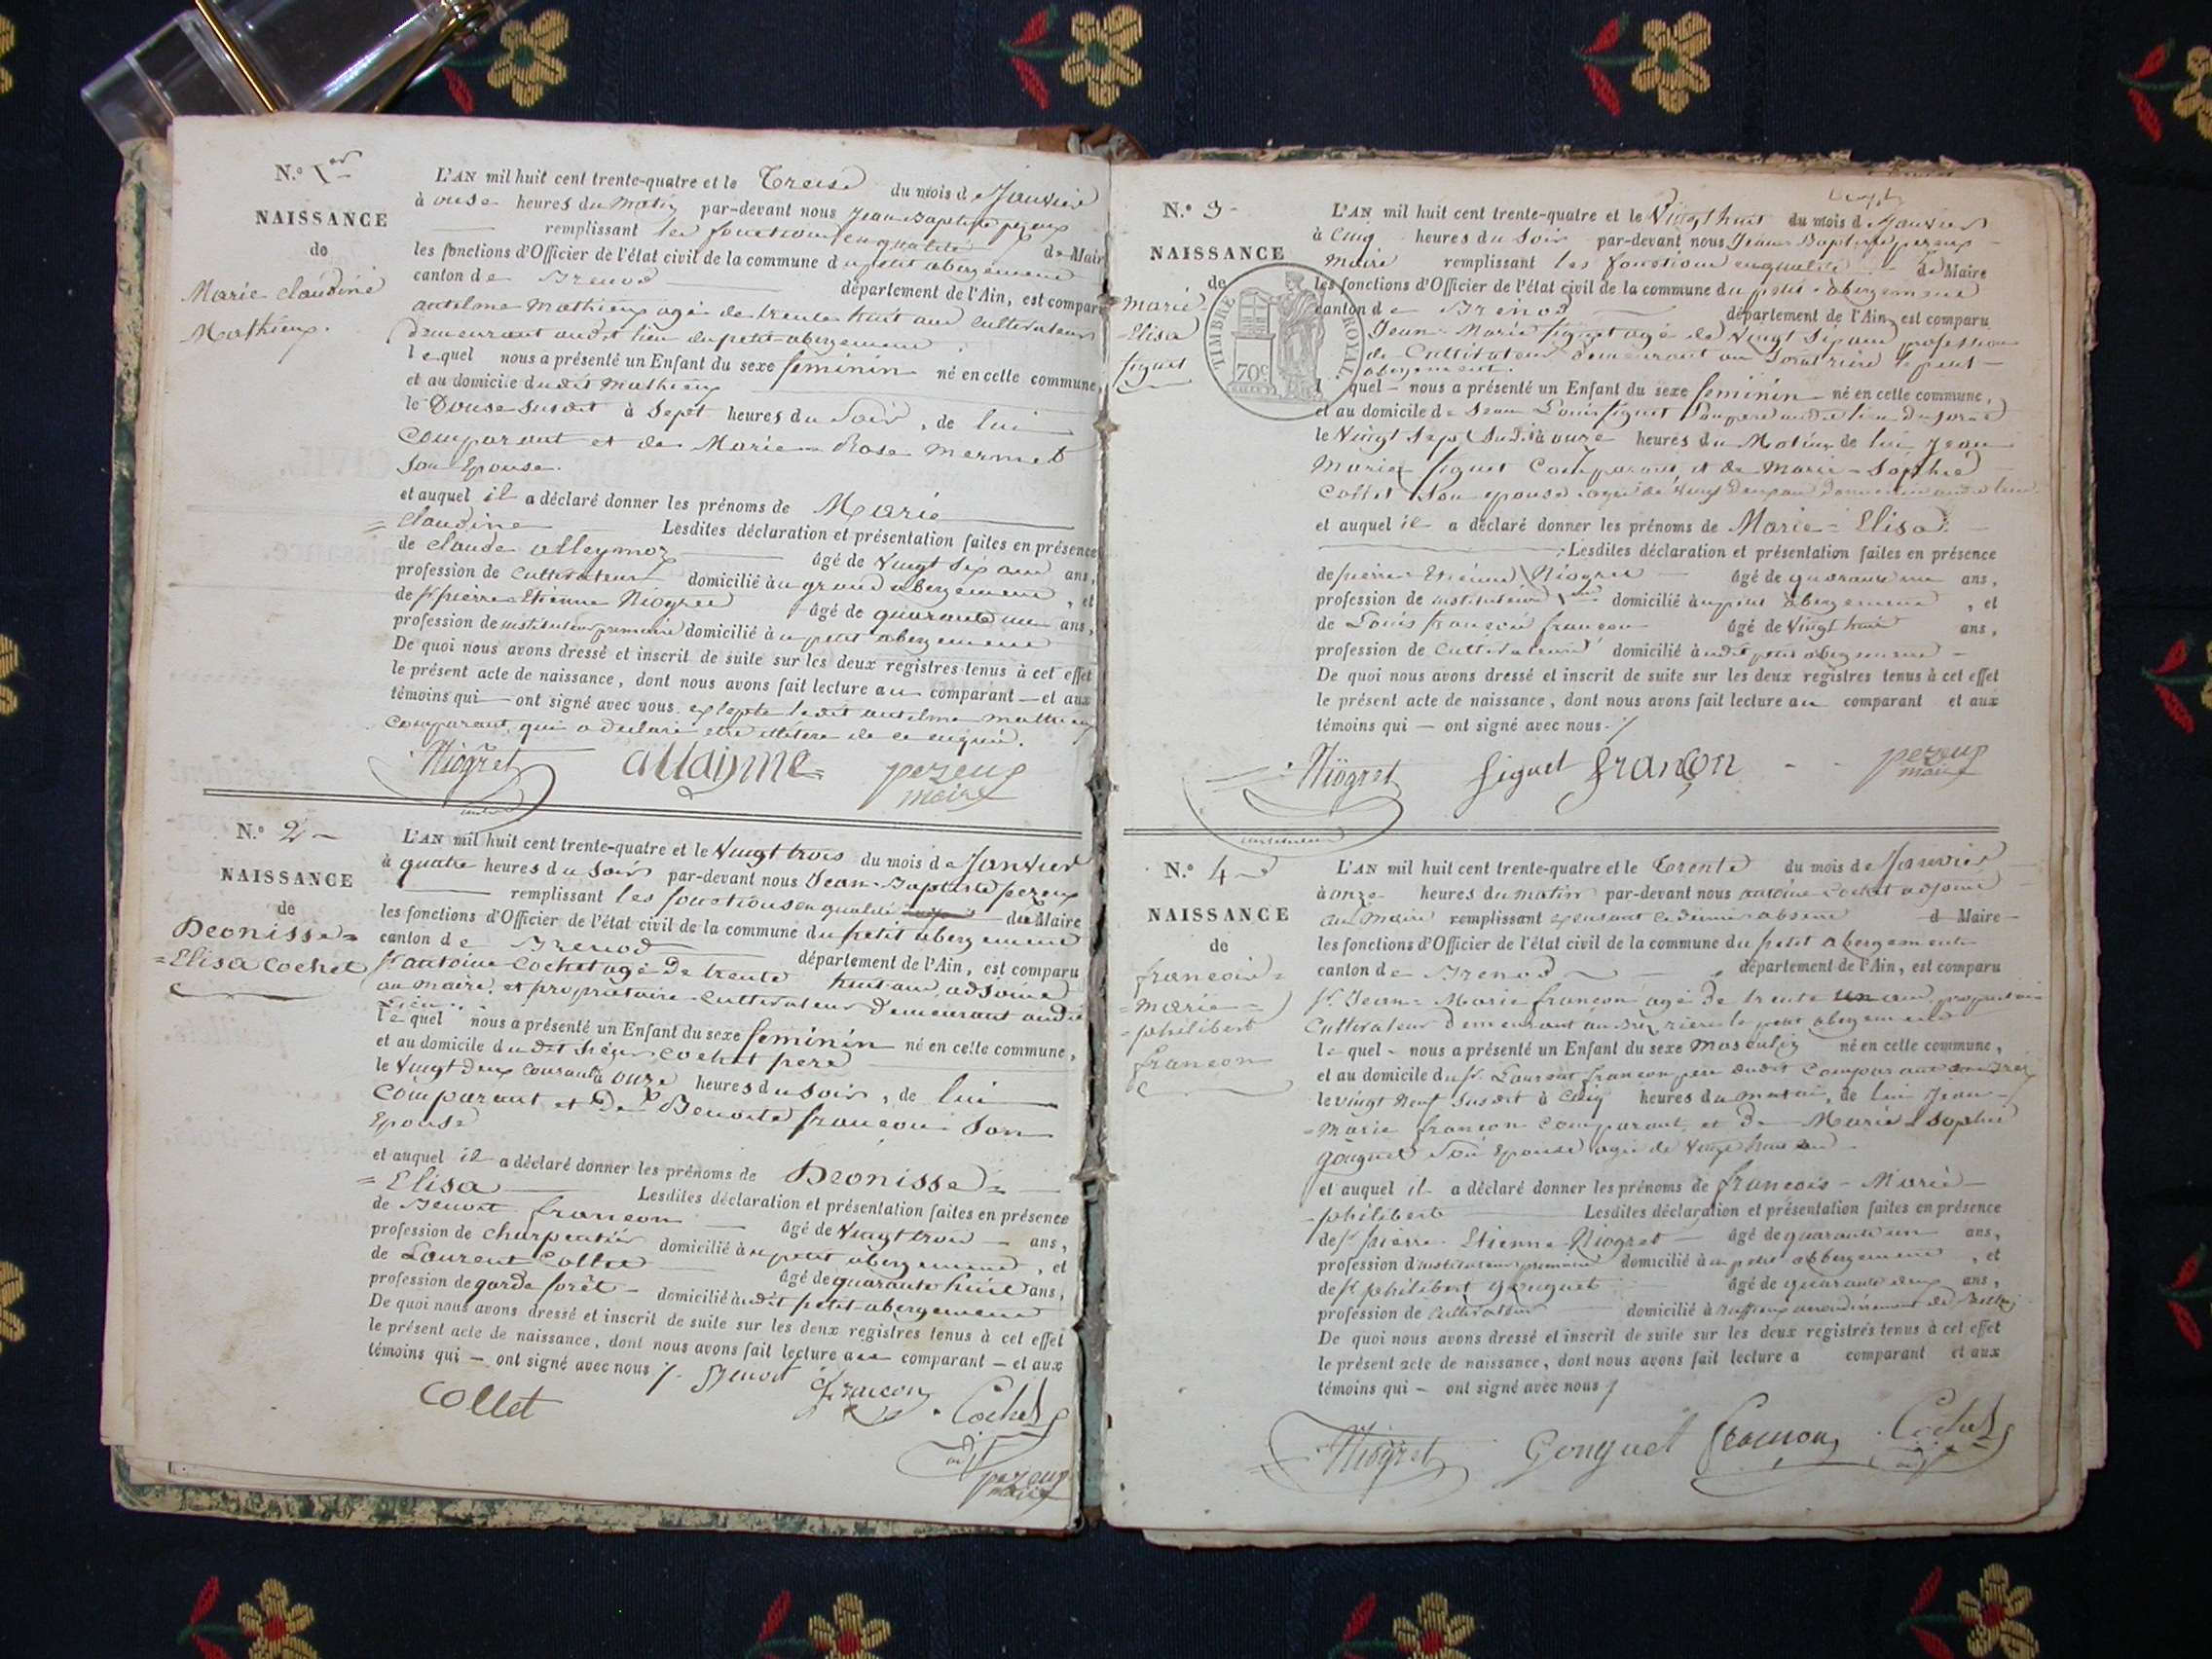 N.º 1er
NAISSANCE
de
Marie Claudine
Mathieux.
L'AN mil huit cent trente-quatre et le Treise du mois de Janvier
à onse heures du Matin par-devant nous Jean Baptiste pezeux
remplissant les fonctions en qualité de Maire
les fonctions d'Officier de l'état civil de la commune du petit abergement
canton de Brenod département de l'Ain, est comparu
antelme Mathieux agé de trente huit ans Cultivateur
demeurant audit lieu du petit abergement
lequel nous a présenté un Enfant du sexe feminin né en celle commune,
et au domicile dudit Mathieux
le Douse susdit à Sept heures du Soir, de lui
Comparant et de Marie Rose Mermet
Son Epouse.
et auquel il a déclaré donner les prénoms de Marie
= Claudine Lesdites déclaration et présentation faites en présence
de Claude alleymoz âgé de Vingt six ans ans,
profession de Cultivateur domicilié au grand abergement, et
de Sr pierre Etienne Niogret âgé de quarante un ans,
profession de instituteur primaire domicilié à u petit abergement
De quoi nous avons dressé et inscrit de suite sur les deux registres tenus à cet effet
le présent acte de naissance, dont nous avons fait lecture au comparant — et aux
témoins qui — ont signé avec nous excepté ledit antelme mathieux
Comparant, qui a declaré etre illetere de ce enquis.
Niogret allayme pezeux
maire
N.º 2
NAISSANCE
de
Deonisse =
= Elisa Cochet
L'AN mil huit cent trente-quatre et le Vingt trois du mois de Janvier
à quatre heures du Soir par-devant nous Jean-Baptiste pezeux
remplissant les fonctions en qualité de Maire
les fonctions d'Officier de l'état civil de la commune du petit abergement
canton de Brenod département de l'Ain, est comparu
Sr antoine Cochet agé de trente huit ans, adjoint
au maire, et proprietaire Cultivateur demeurant audit
Lieu
lequel nous a présenté un Enfant du sexe feminin né en celle commune,
et au domicile dudit Cochet pere
le Vingt deux Courant à onze heures du soir, de lui
Comparant et de Benoite françon Son
Epouse
et auquel il a déclaré donner les prénoms de Deonisse =
= Elisa Lesdites déclaration et présentation faites en présence
de Benoit françon âgé de Vingt trois — ans,
profession de Charpentier domicilié à u petit abergement, et
de Laurent Collet âgé de quarante huit ans,
profession de garde forêt — domicilié à udit petit abergement
De quoi nous avons dressé et inscrit de suite sur les deux registres tenus à cet effet
le présent acte de naissance, dont nous avons fait lecture au comparant — et aux
témoins qui — ont signé avec nous /. Benoit
Collet françon Cochet
adjt
pezeux
maire
N.º 3
NAISSANCE
de
Marie
= Elisa
figuet
TIMBRE ROYAL
70c
L'AN mil huit cent trente-quatre et le Vingt huit du mois de Janvier
à Cinq heures du Soir par-devant nous Jean Baptiste pezeux
Maire remplissant les fonctions en qualité de Maire
les fonctions d'Officier de l'état civil de la commune du petit abergement
canton de Brenod département de l'Ain, est comparu
Jean-Marie figuet agé de Vingt Six ans profession
de Cultivateur demeurant au riere le petit
abergement.
lequel — nous a présenté un Enfant du sexe feminin né en celle commune,
et au domicile de Jean Louis figuet Son pere audit lieu
le Vingt Sept Susdit à onze heures du Matin, de lui Jean
Marie figuet Comparant, et de Marie-Sophie
Collet Son epouse agée de Vingt Deux ans
et auquel il a déclaré donner les prénoms de Marie = Elisa
Lesdites déclaration et présentation faites en présence
de pierre Etienne Niogret âgé de quarante un ans,
profession de instituteur domicilié à u petit abergement, et
de Louis françois françon âgé de Vingt huit ans,
profession de Cultivateur domicilié à udit petit abergement
De quoi nous avons dressé et inscrit de suite sur les deux registres tenus à cet effet
le présent acte de naissance, dont nous avons fait lecture au comparant et aux
témoins qui — ont signé avec nous. /
Niogret figuet françon pezeux
instituteur maire
N.º 4
NAISSANCE
de
françois =
= marie =
= philibert
françon
L'AN mil huit cent trente-quatre et le Trente du mois de Janvier
à onze heures du matin par-devant nous antoine Cochet adjoint
au Maire remplissant absent d Maire
les fonctions d'Officier de l'état civil de la commune du petit abergement
canton de Brenod département de l'Ain, est comparu
Sr Jean-Marie françon agé de trente un ans, proprietaire
Cultivateur demeurant riere le petit abergement
lequel — nous a présenté un Enfant du sexe Masculin né en celle commune,
et au domicile du Sr Laurent françon pere dudit Comparant
le vingt neuf susdit à Cinq heures du matin, de lui Jean-
= Marie françon Comparant, et de Marie = Sophie
gouguet Son Epouse agée de Vingt huit ans
et auquel il a déclaré donner les prénoms de françois - Marie
- philibert Lesdites déclaration et présentation faites en présence
de Sr pierre Etienne Niogret — âgé de quarante un ans,
profession d'instituteur primaire domicilié à u petit abbergement, et
de Sr philibert gouguet âgé de quarante deux ans,
profession de Cultivateur domicilié à Ruffieux arrondissement de Belley
De quoi nous avons dressé et inscrit de suite sur les deux registres tenus à cet effet
le présent acte de naissance, dont nous avons fait lecture a comparant et aux
témoins qui — ont signé avec nous /
Niogret Gouguet francon Cochet
adjt